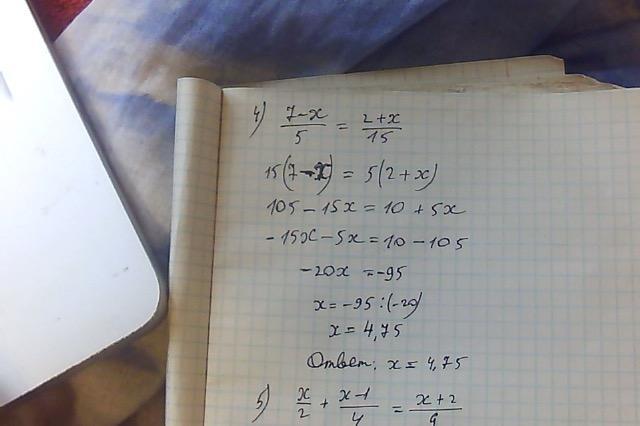 4) (7-x)/5 = (2+x)/15
15(7-x) = 5(2+x)
105 - 15x = 10 + 5x
-15x - 5x = 10 - 105
-20x = -95
x = -95 : (-20)
x = 4,75
Ответ: x = 4,75
5) x/2 + (x-1)/4 = (x+2)/9